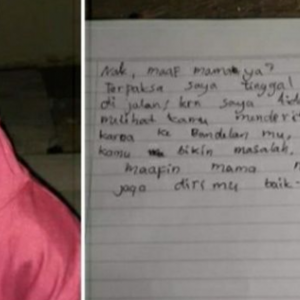 Nak, maaf mamah ya?
Terpaksa saya tinggal
di jalan, krn saya tid
melihat kamu menderi
karna ke Bandalan mu,
kamu bikin masalah.
maafin mama
jaga diri mu baik-